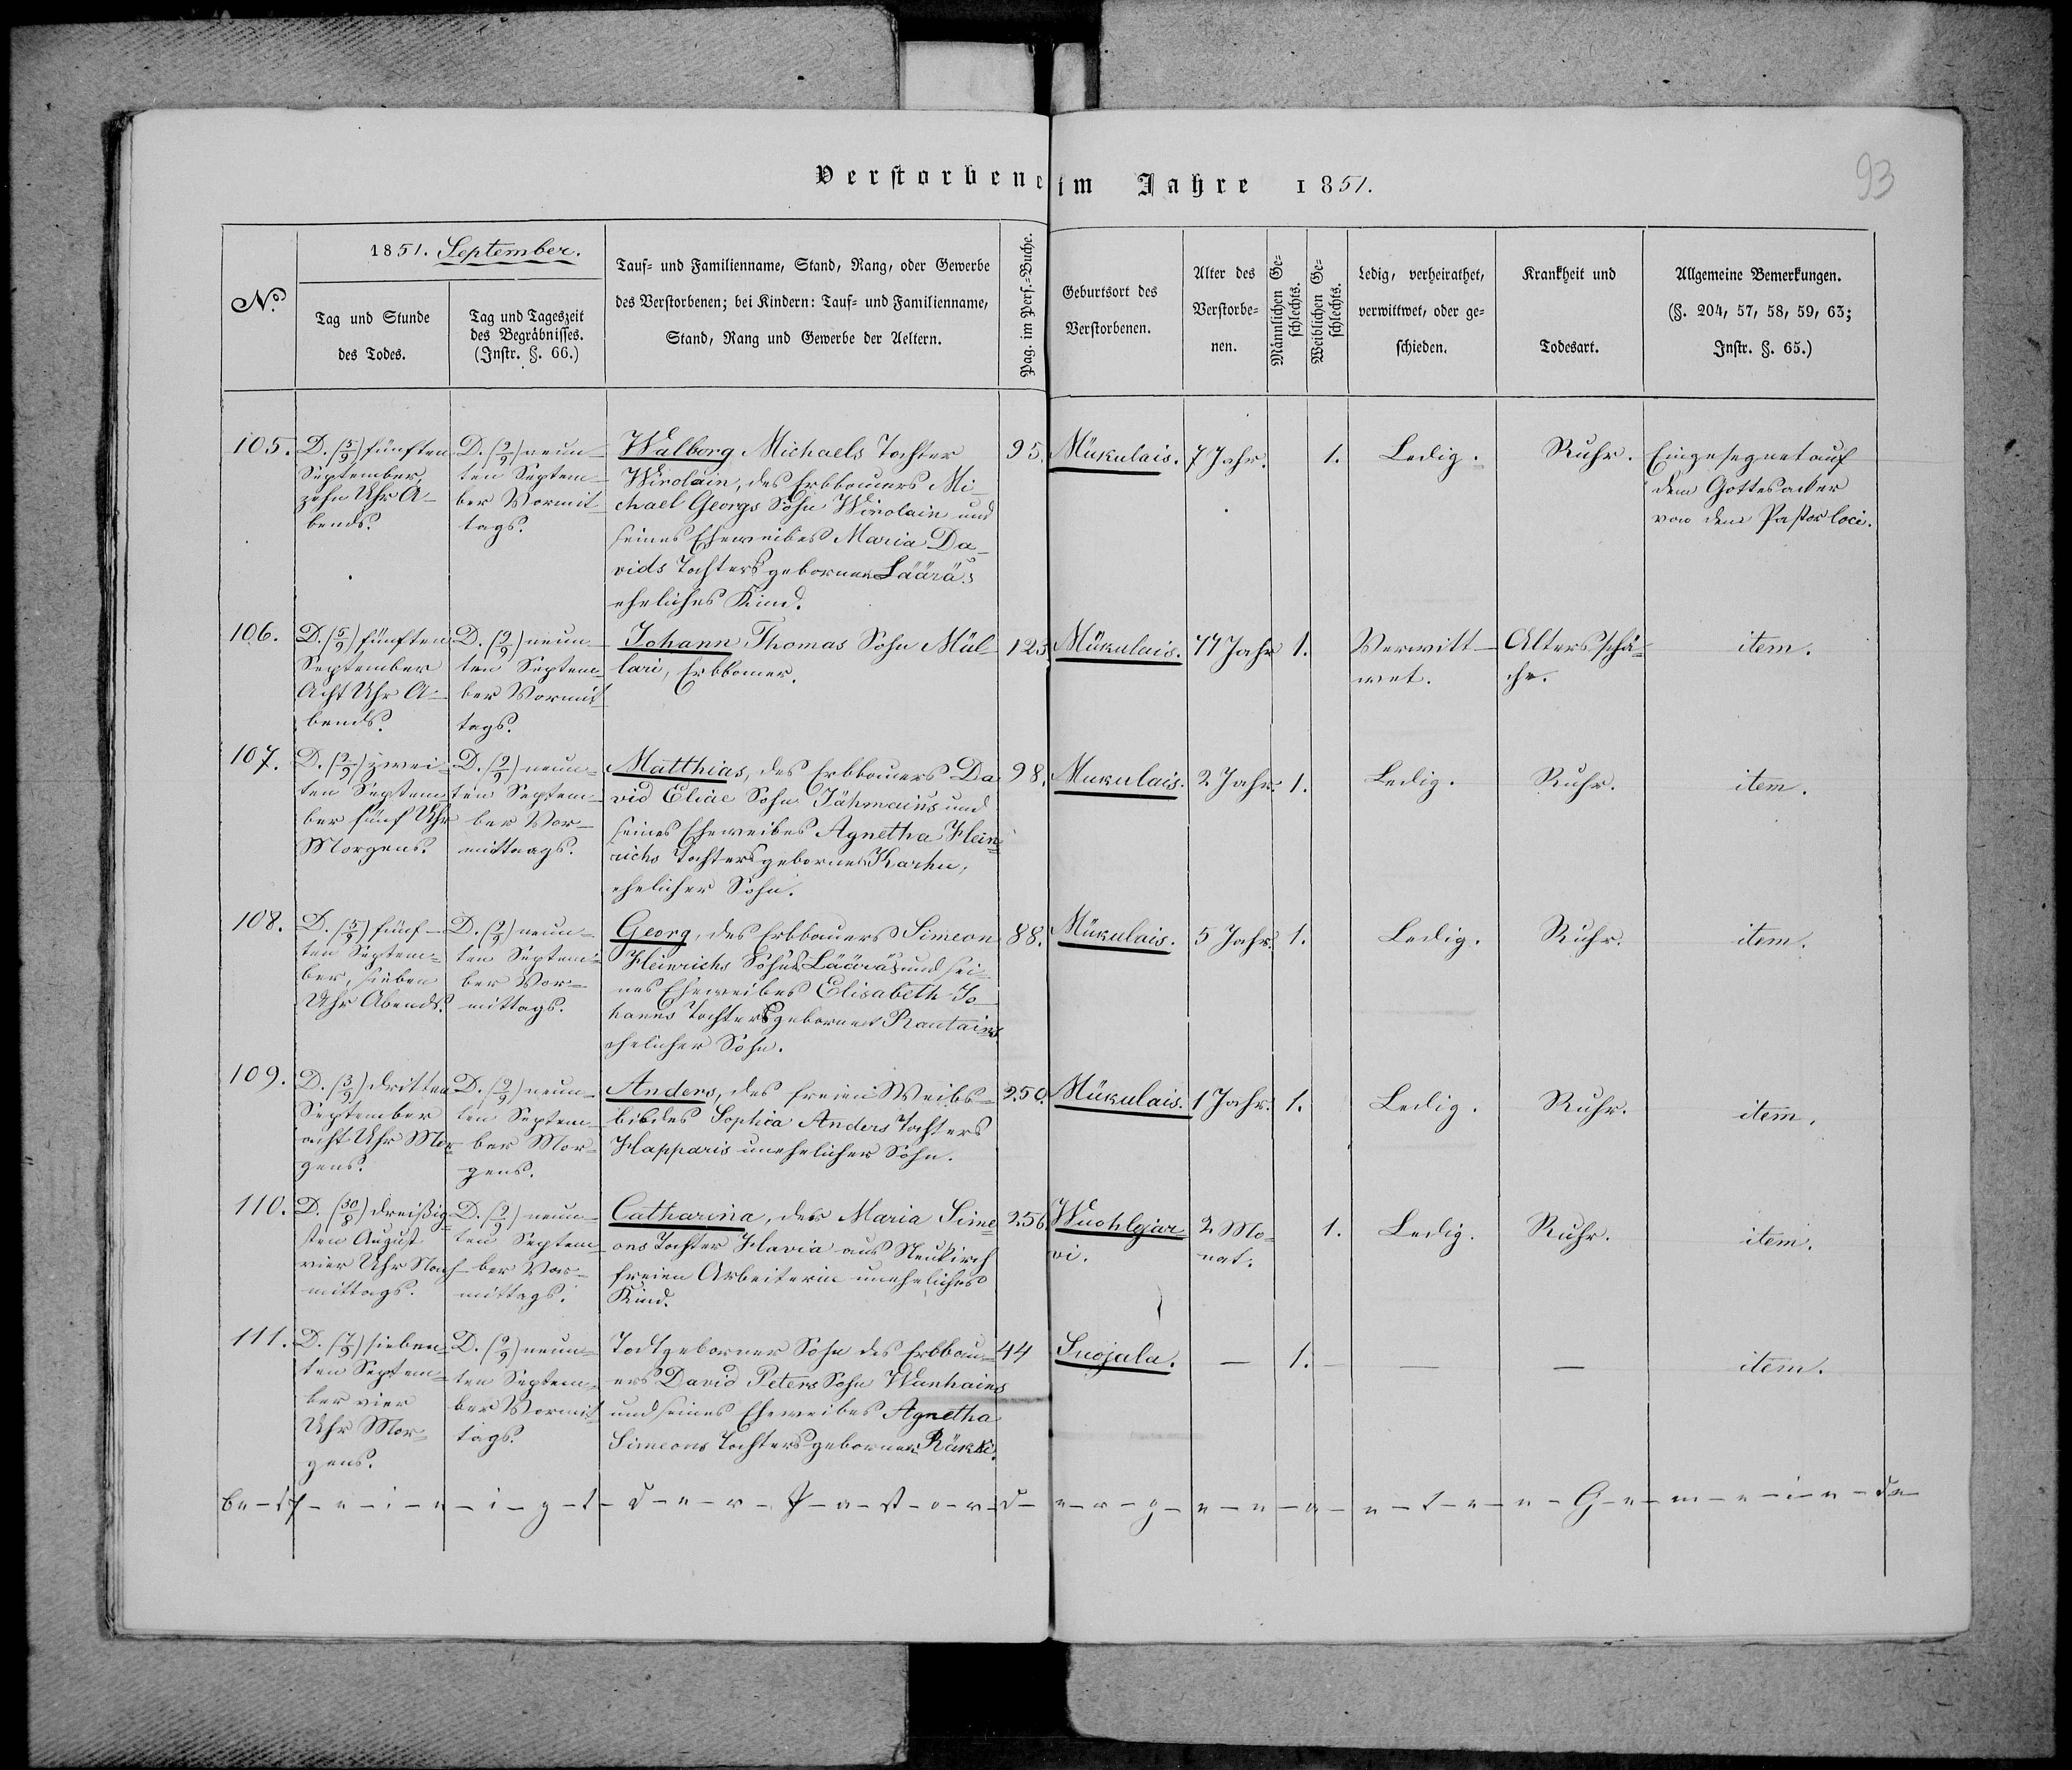 Verstorbene im Jahre 1851.
93
No.
1851. September.
Tag und Stunde
des Todes.
Tag und Tageszeit
des Begräbnisses.
(Instr. §. 66.)
Tauf- und Familienname, Stand, Rang, oder Gewerbe
des Verstorbenen; bei Kindern: Tauf- und Familienname,
Stand, Rang und Gewerbe der Aeltern.
Pag. im Pers.-Buche.
Geburtsort des
Verstorbenen.
Alter des
Verstorbe-
nen.
Männlichen Ge-
schlechts.
Weiblichen Ge-
schlechts.
Ledig, verheirathet,
verwittwet, oder ge-
schieden.
Krankheit und
Todesart.
Allgemeine Bemerkungen.
(§. 204, 57, 58, 59, 63;
Instr. §. 65.)
105.
D. (5/9) fünften
September,
zehn Uhr A-
bends.
D. (9/9) neun-
ten Septem-
ber Vormit-
tags.
Walborg Michaels Tochter
Wirolain, des Erbbauers Mi-
chael Georgs Sohn Wirolain und
seines Eheweibes Maria Da-
vids Tochters geborner Läärä's
eheliches Kind.
95.
Mükulais.
7 Jahr.
1.
Ledig.
Ruhr.
Eingesegnet auf
dem Gottesacker
von dem Pastor loci.
106.
D. (5/9) fünften
September
Acht Uhr A-
bends.
D. (9/9) neun-
ten Septem-
ber Vormit-
tags.
Johann Thomas Sohn Mül-
lari, Erbbauer.
123
Mükulais.
77 Jahr
1.
Verwitt-
wet.
Altersschä-
che.
item.
107.
D. (2/9) zwei-
ten Septem-
ber fünf Uhr
Morgens.
D. (9/9) neun-
ten Septem-
ber Vor-
mittags.
Matthias, des Erbbauers Da-
vid Eliae Sohn Jähmäins und
seines Eheweibes Agnetha Hein-
richs Tochters geborner Karhu,
ehelicher Sohn.
98.
Mukulais.
2 Jahr.
1.
Ledig.
Ruhr.
item.
108.
D. (5/9) fünf-
ten Septem-
ber, sieben
Uhr Abends.
D. (9/9) neun-
ten Septem-
ber Vor-
mittags.
Georg, des Erbbauers Simeon
Heinrichs Sohns Läärä's und sei-
nes Eheweibes Elisabeth Jo-
hanns Tochters geborner Rautains
ehelicher Sohn.
88.
Mükulais.
5 Jahr.
1.
Ledig.
Ruhr.
item.
109.
D. (3/9) dritten
September
acht Uhr Mor-
gens.
D. (9/9) neun-
ten Septem-
ber Mor-
gens.
Anders, des freien Weibs-
bildes Sophia Anders Tochters
Happaris unehelicher Sohn.
250.
Mükulais.
1 Jahr.
1.
Ledig.
Ruhr.
item.
110.
D. (30/8) dreißig-
sten August
vier Uhr Nach-
mittags.
D. (9/9) neun-
ten Septem-
ber Vor-
mittags.
Catharina, der Maria Sime-
ons Tochter Flavia aus Neukirch
freien Arbeiterin uneheliches
Kind.
256.
Wuohlejar-
vi.
2 Mo-
nat.
1.
Ledig.
Ruhr.
item.
111.
D. (7/9) sieben-
ten Septem-
ber vier
Uhr Mor-
gens.
D. (9/9) neun-
ten Septem-
ber Vormit-
tags.
Todtgeborner Sohn des Erbbau-
ers David Peters Sohn Wanhains
und seines Eheweibes Agnetha
Simeons Tochters geborner Räikki.
44
Suojala.
—
1.
—
—
item.
be-sch-e-i-n-i-g-t- d-e-r- P-a-st-o-r- d-e-r- g-e-n-a-n-t-e-n- G-e-m-e-i-n-de